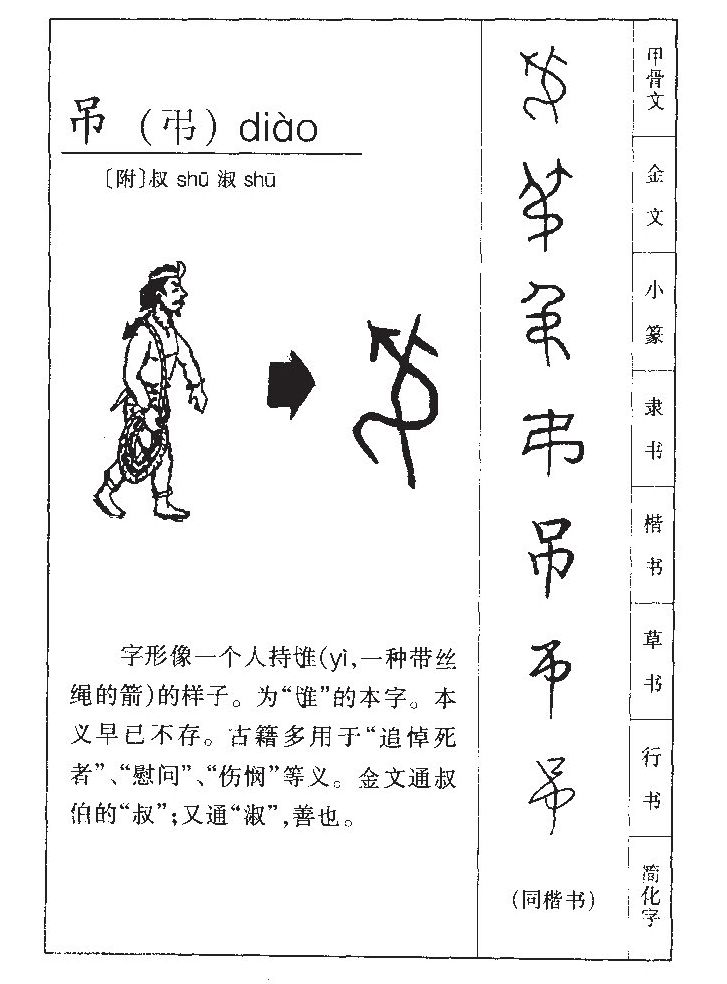 吊（弔）diào
〔附〕叔 shū 淑 shū
字形像一个人持隿(yì,一种带丝
绳的箭)的样子。为“隿”的本字。本
义早已不存。古籍多用于“追悼死
者”、“慰问”、“伤悯”等义。金文通叔
伯的“叔”;又通“淑”,善也。
甲骨文
金文
小篆
隶书
弔
楷书
吊
草书
吊
行书
吊
简化字
(同楷书)